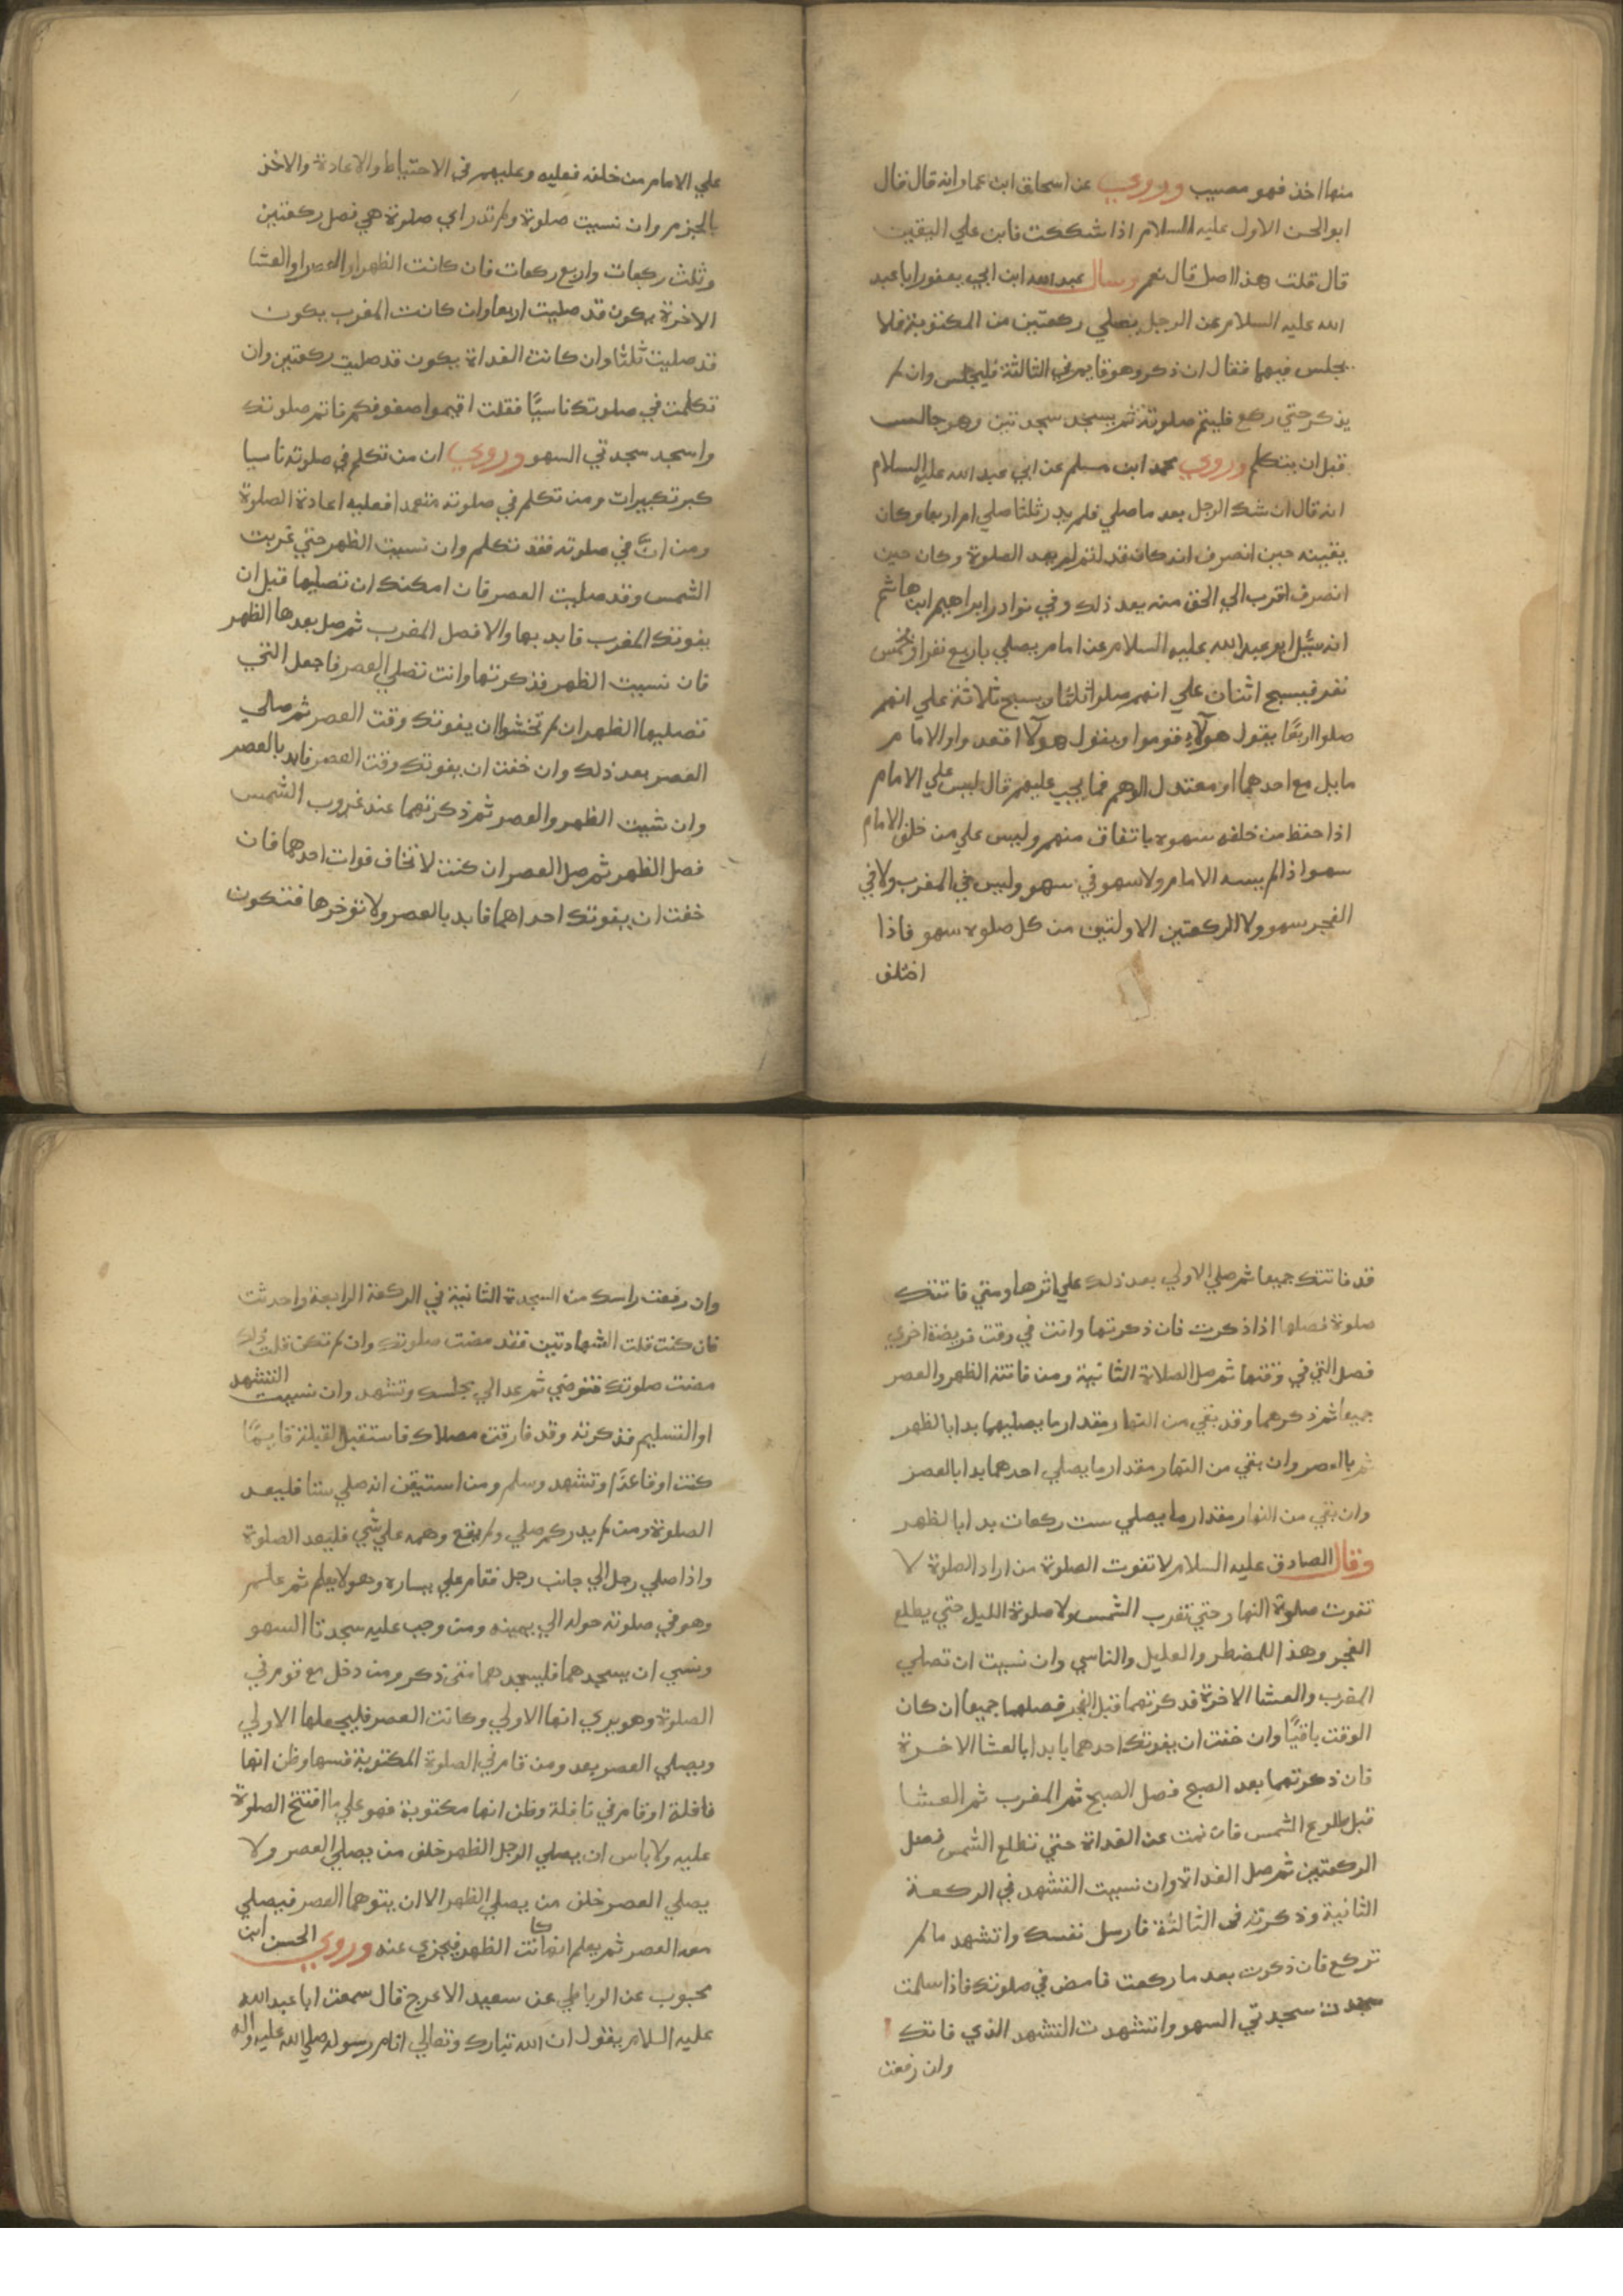 منها اخذ فهو مصيب وروي عن اسحاق ابن عمار انه قال قال
ابو الحسن الاول عليه السلام اذا شككت فابن علي اليقين
قال قلت هذا اصل قال نعم وسال عبد الله ابن ابي يعفور ابا عبد
الله عليه السلام عن الرجل يصلي ركعتين من المكتوبة فلا
يجلس فيهما فقال ان ذكر وهو قايم في الثالثة فليجلس وان لم
يذكر حتي ركع فليتم صلوته ثم يسجد سجدتين وهو جالس
قبل ان يتكلم وروي محمد ابن مسلم عن ابي عبد الله عليه السلام
انه قال ان شك الرجل بعد ما صلي فلم يدر ثلثا صلي ام اربعا وكان
يقينه حين انصرف انه كان قد اتم لم يعد الصلوة وكان حين
انصرف اقرب الي الحق منه بعد ذلك وفي نوادر ابراهيم ابن هاشم
انه سئل ابو عبد الله عليه السلام عن امام يصلي باربع نفر او بخمس
نفر فيسبح اثنان علي انهم صلوا ثلثا ويسبح ثلاثة علي انهم
صلوا اربعًا يقول هولاء قوموا ويقول هولاء اقعدوا والامام
مايل مع احدهما او معتدل الوهم فما يجب عليهم قال ليس علي الامام
اذا حفظ من خلفه سهوه باتفاق منهم وليس علي من خلف الامام
سهو اذا لم يسه الامام ولا سهو في سهو وليس في المغرب ولا في
الفجر سهو ولا الركعتين الاولتين من كل صلوة سهو فاذا
اختلف
علي الامام من خلفه فعليه وعليهم في الاحتياط والاعادة والاخذ
بالجزم وان نسيت صلوة ولم تدر اي صلوة هي فصل ركعتين
وثلث ركعات واربع ركعات فان كانت الظهر او العصر او العشا
الاخرة يكون قد صليت اربعا وان كانت المغرب يكون
قد صليت ثلثا وان كانت الغداة يكون قد صليت ركعتين وان
تكلمت في صلوتك ناسيًا فقلت اقيموا صفوفكم فاتم صلوتك
واسجد سجدتي السهو وروي ان من تكلم في صلوته ناسيا
كبر تكبيرات ومن تكلم في صلوته متعمدا فعليه اعادة الصلوة
ومن انَّ في صلوته فقد تكلم وان نسيت الظهر حتي غربت
الشمس وقد صليت العصر فان امكنك ان تصليها قبل ان
يفوتك المغرب فابد بها والا فصل المغرب ثم صل بعدها الظهر
فان نسيت الظهر فذكرتها وانت تصلي العصر فاجعل التي
تصليها الظهر ان لم تخشوا ان يفوتك وقت العصر ثم صلي
العصر بعد ذلك وان خفت ان يفوتك وقت العصر فابد بالعصر
وان نسيت الظهر والعصر ثم ذكرتهما عند غروب الشمس
فصل الظهر ثم صل العصر ان كنت لا تخاف فوات احدهما فان
خفت ان يفوتك احداهما فابد بالعصر ولا تؤخرها فتكون
قد فاتتك جميعا ثم صلي الاولي بعد ذلك علي اثرها ومتي فاتتك
صلوة فصلها اذا ذكرت فان ذكرتها وانت في وقت فريضة اخري
فصل التي في وقتها ثم صل الصلاة الثانية ومن فاتته الظهر والعصر
جميعا ثم ذكرهما وقد بقي من النهار مقدار ما يصليهما بدا بالظهر
ثم بالعصر وان بقي من النهار مقدار ما يصلي احدهما بدا بالعصر
وان بقي من النهار مقدار ما يصلي ست ركعات بدا بالظهر
وقال الصادق عليه السلام لا تفوت الصلوة من اراد الصلوة لا
تفوت صلوة النهار حتي تغرب الشمس ولا صلوة الليل حتي يطلع
الفجر وهذا للمضطر والعليل والناسي وان نسيت ان تصلي
المغرب والعشا الاخرة فذكرتهما قبل الفجر فصلهما جميعا ان كان
الوقت باقيًا وان خفت ان يفوتك احدهما بابدا بالعشا الاخرة
فان ذكرتهما بعد الصبح فصل الصبح ثم المغرب ثم العشا
قبل طلوع الشمس فان نمت عن الغداة حتي تطلع الشمس فصل
الركعتين ثم صل الغداة وان نسيت التشهد في الركعة
الثانية وذكرته في الثالثة فارسل نفسك واتشهد ما لم
تركع فان ذكرت بعد ما ركعت فامض في صلوتك فاذا سلمت
سجدت سجدتي السهو واتشهدت التشهد الذي فاتك
وان رفعت
وان رفعت راسك من السجدة الثانية في الركعة الرابعة واحدثت
فان كنت قلت الشهادتين فقد مضت صلوتك وان لم تكن قلت ذلك
مضت صلوتك فتوضي ثم عد الي مجلسك وتشهد وان نسيت التشهد
او التسليم فذكرته وقد فارقت مصلاك فاستقبل القبلة قايمًا
كنت او قاعدًا وتشهد وسلم ومن استيقن انه صلي ستا فليعد
الصلوة ومن لم يدر كم صلي ولم يقع وهمه علي شي فليعد الصلوة
واذا صلي رجل الي جانب رجل فقام علي يساره وهو لا يعلم ثم علم
وهو في صلوته حوله الي يمينه ومن وجب عليه سجدتا السهو
ونسي ان يسجدهما فليسجدهما متي ذكر ومن دخل مع قوم في
الصلوة وهو يري انها الاولي وكانت العصر فليجعلها الاولي
ويصلي العصر بعد ومن قام في الصلوة المكتوبة فسها وظن انها
نافلة او قام في نافلة وظن انها مكتوبة فهو علي ما افتتح الصلوة
عليه ولا باس ان يصلي الرجل الظهر خلف من يصلي العصر ولا
يصلي العصر خلف من يصلي الظهر الا ان يتوهما العصر فيصلي
معه العصر ثم يعلم انها كانت الظهر فيجزي عنه وروي الحسن ابن
محبوب عن الرباطي عن سعيد الاعرج قال سمعت ابا عبد الله
عليه السلام يقول ان الله تبارك وتعالي انام رسوله صلي الله عليه واله